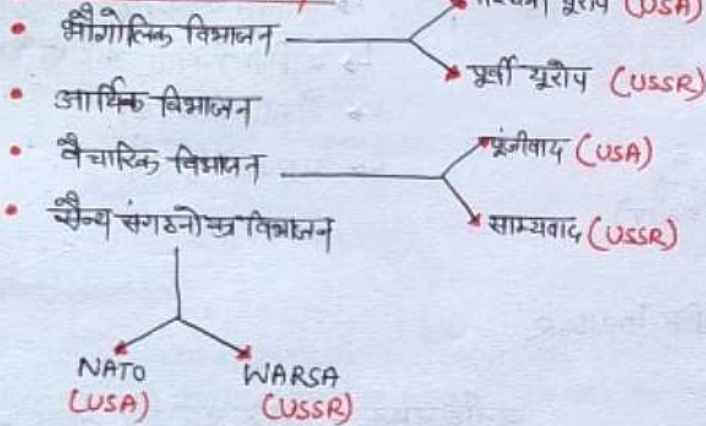 • भौगोलिक विभाजन
यूरोप (USA)
पूर्वी यूरोप (USSR)
• आर्थिक विभाजन
• वैचारिक विभाजन
पूंजीवाद (USA)
साम्यवाद (USSR)
• सैन्य संगठनो का विभाजन
NATO
(USA)
WARSA
(USSR)